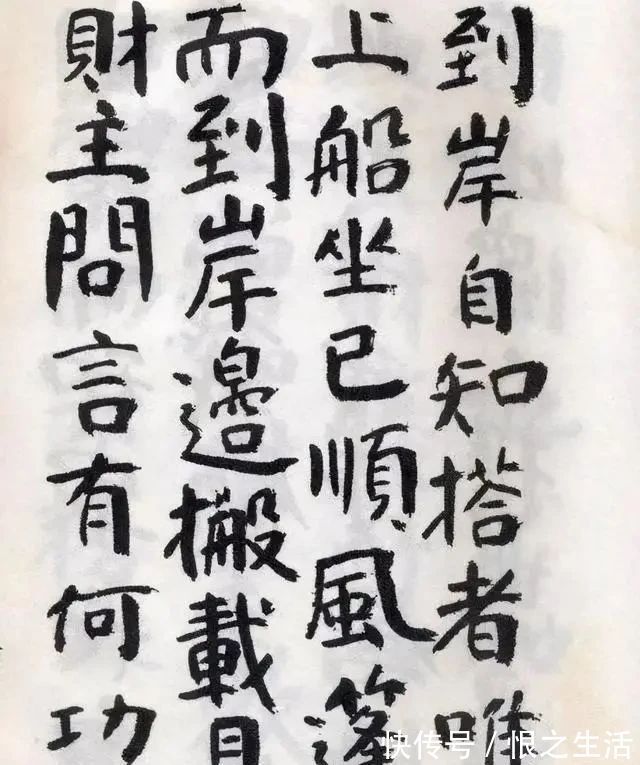 到岸自知搭者唯
上船坐已順風篷
而到岸邊搬載
財主問言有何功
快传号/恨之生活